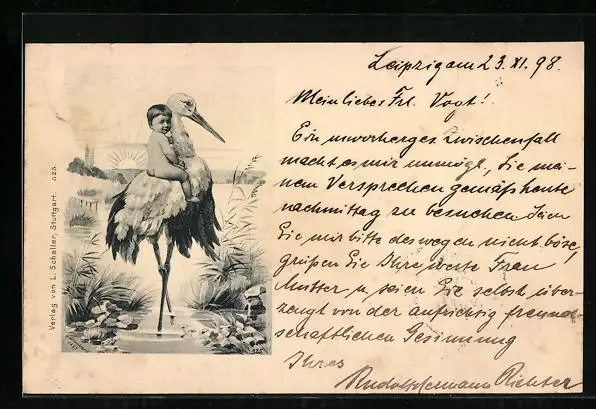 Leipzig am 23. XI. 98.
Mein liebes Frl. Vogt!
Ein unvorherges. Zwischenfall
macht es mir unmögl., Sie mei-
nem Versprechen gemäß heute
nachmittag zu besuchen. Seien
Sie mir bitte deswegen nicht böse,
grüßen Sie Ihre werte Frau
Mutter u. seien Sie selbst über-
zeugt von der aufrichtig freund-
schaftlichen Gesinnung
Ihres
Rudolf Hermann Richter
Verlag von L. Schaller, Stuttgart. 525.